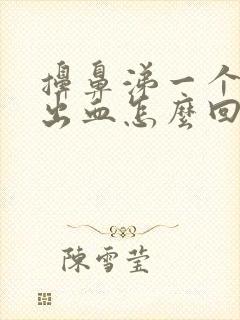 擤鼻涕一个
出血怎麼回
陳雪瑩